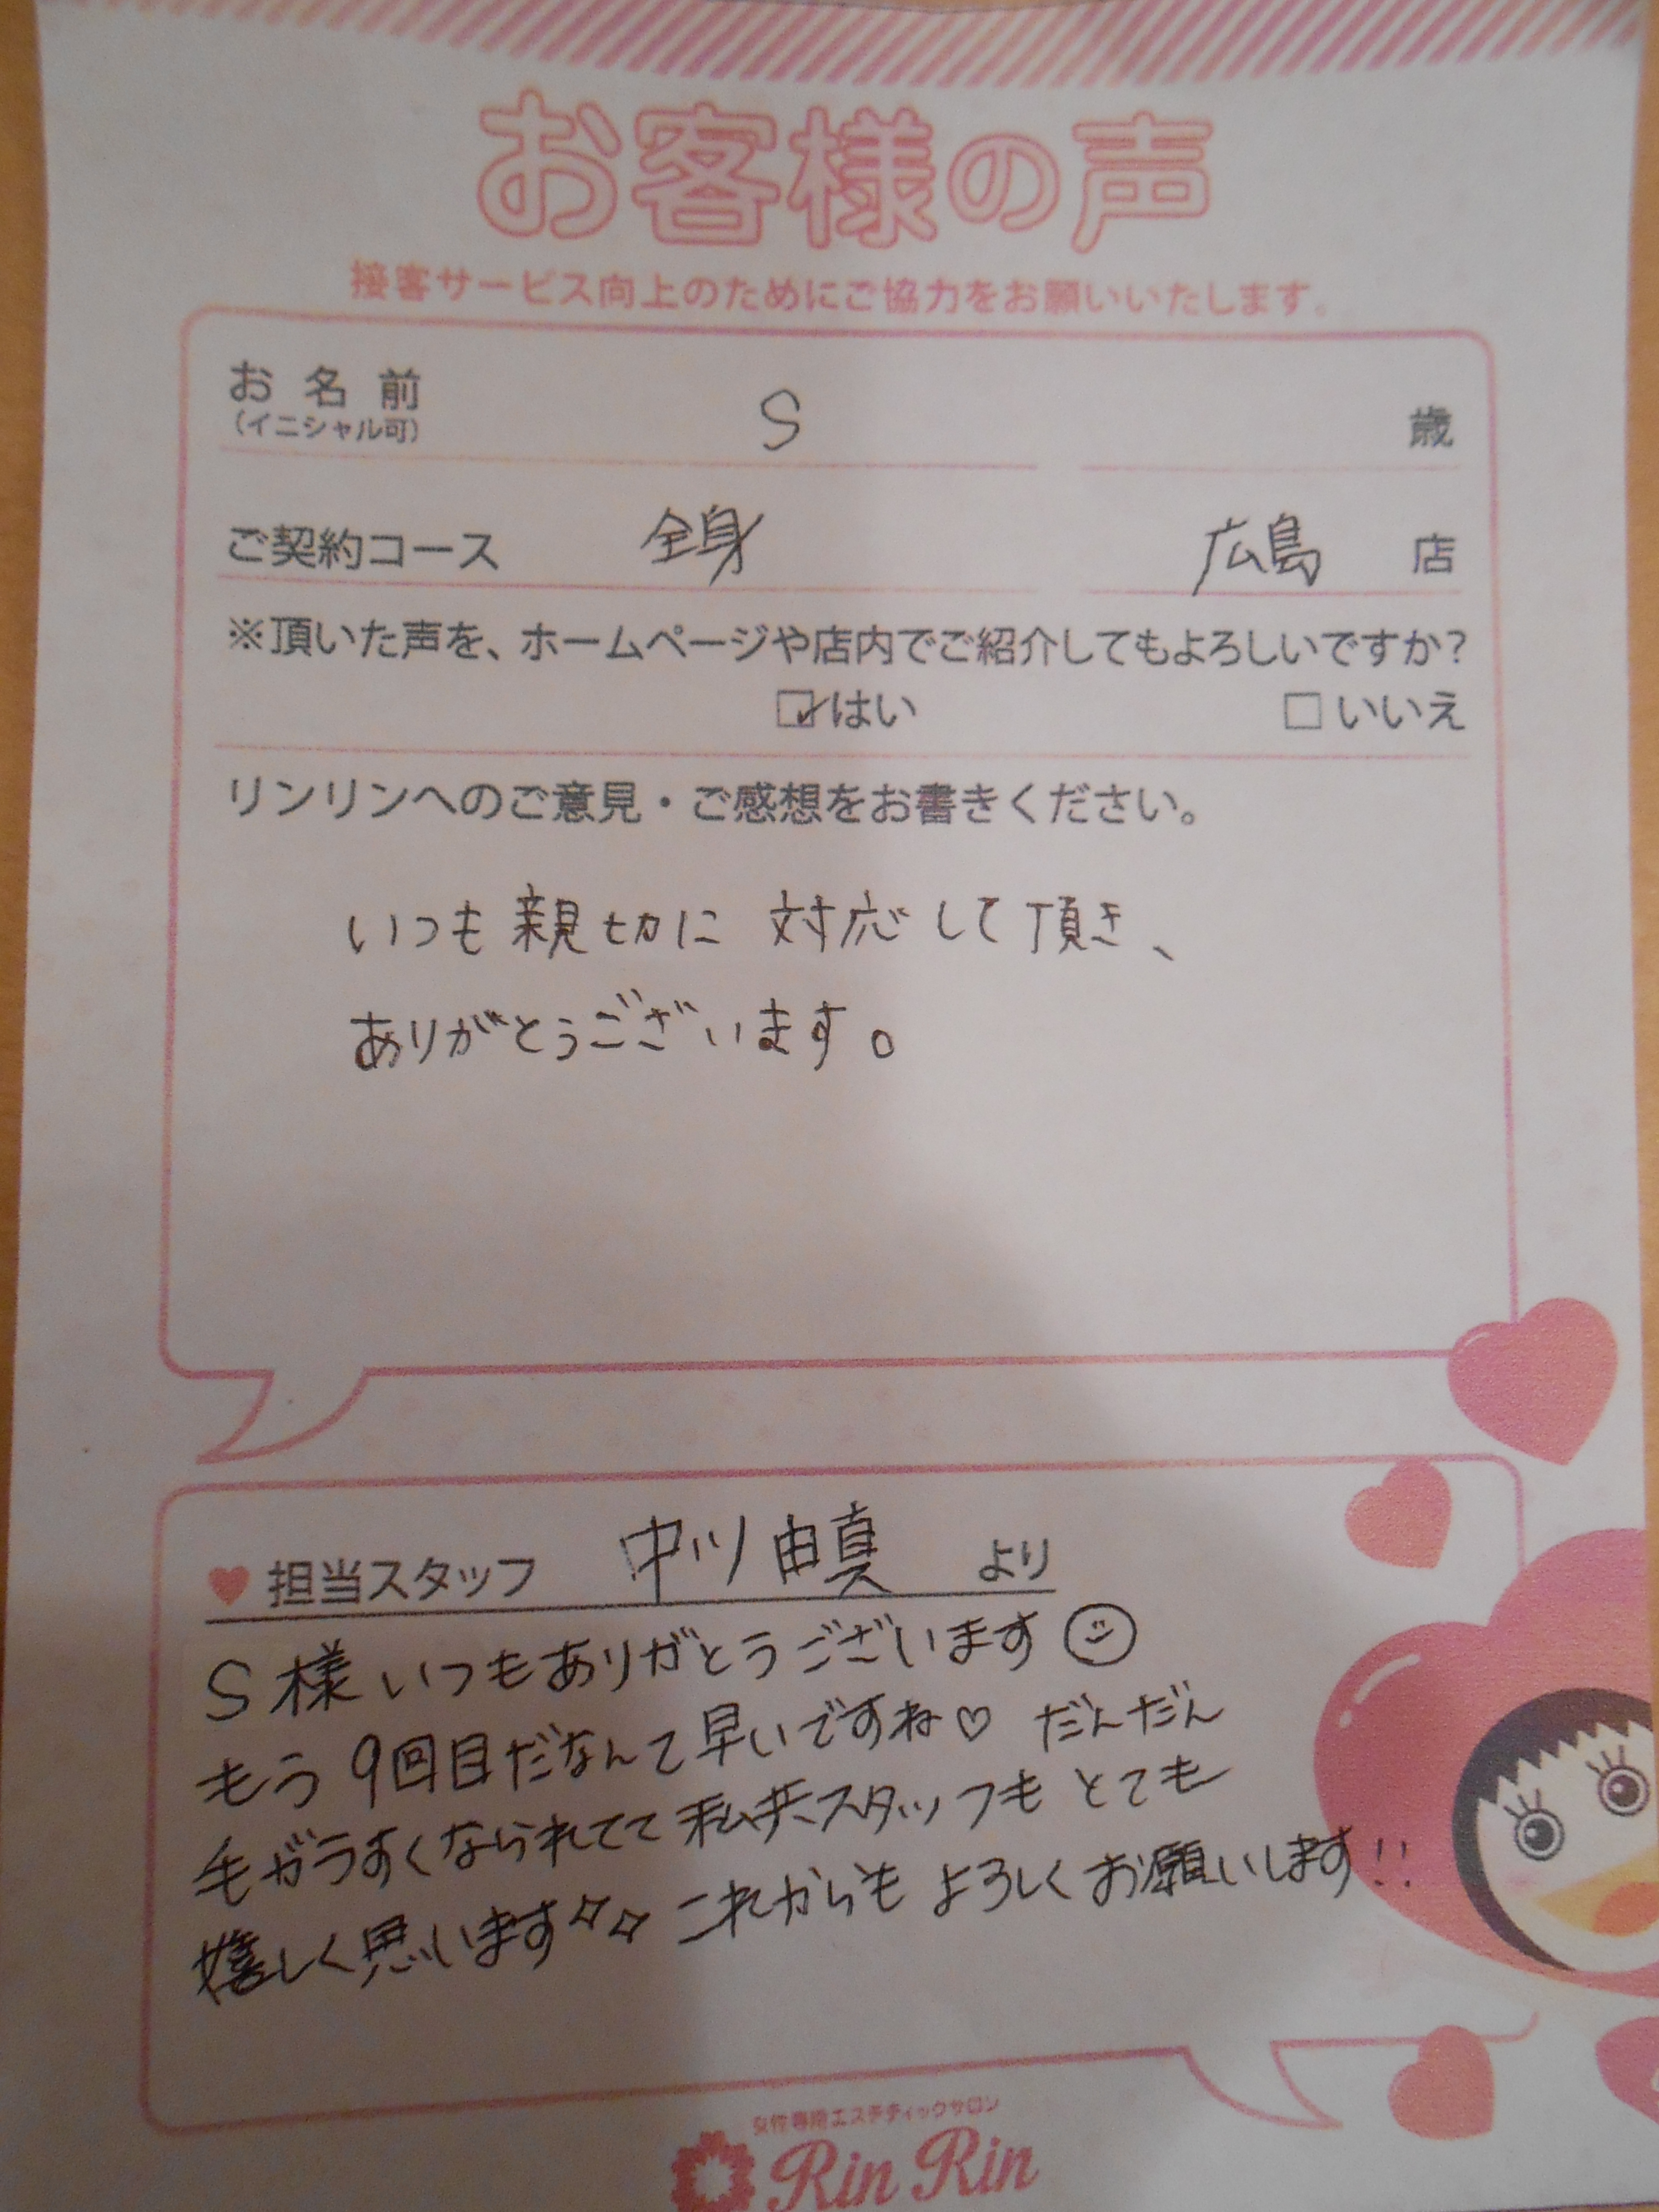 お客様の声
接客サービス向上のためにご協力をお願いいたします。
お名前 S 歳
(イニシャル可)
ご契約コース 全身 広島 店
※頂いた声を、ホームページや店内でご紹介してもよろしいですか?
☑はい □いいえ
リンリンへのご意見・ご感想をお書きください。
いつも親切に対応して頂き、
ありがとうございます。
♥担当スタッフ 中川由真 より
S様いつもありがとうございます☺
もう9回目だなんて早いですね♡ だんだん
毛がうすくなられてて私共スタッフもとても
嬉しく思います✧✧ これからもよろしくお願いします!!
女性専用エステティックサロン
Rin Rin